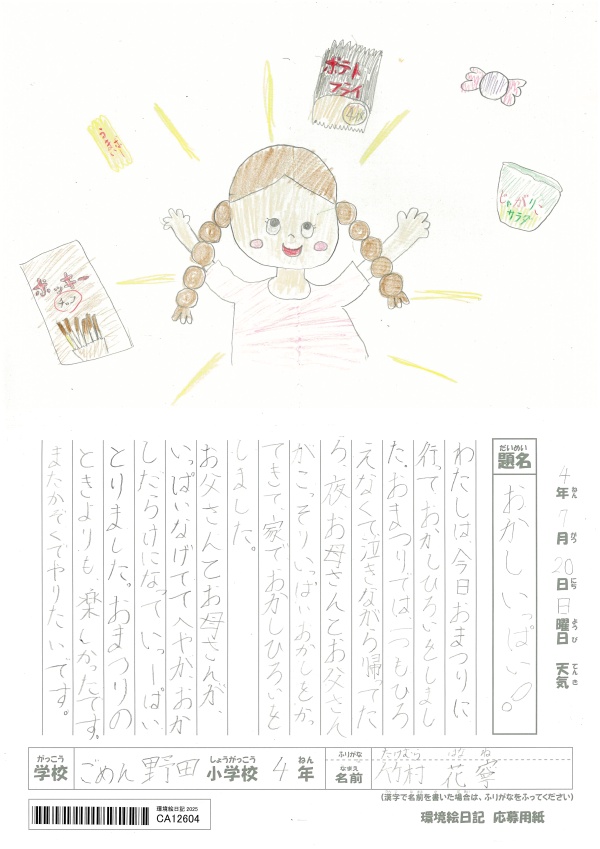 ポテト
フライ
うまい
じゃがりこ
サラダ
ポッキー
チョコ
4年 7月 20日 日曜日 天気
ねん がつ にち ようび てんき
だいめい
題名
おかしいっぱい!!
わたしは、今日おまつりに
行っておかしひろいをしまし
た。おまつりでは一つもひろ
えなくて泣きながら帰ってた
ら、夜、お母さんとお父さん
がこっそりいっぱいおかしをかっ
てきて、家でおかしひろいを
しました。
お父さんとお母さんが、
いっぱいなげててへやがおか
しだらけになっていっーぱい
とりました。おまつりの
ときよりも、楽しかったです。
またかぞくでやりたいです。
がっこう しょうがっこう ねん ふりがな たけむら はな ね
学校 ごめん野田 小学校 4年 なまえ 名前 竹村 花寧
(漢字で名前を書いた場合は、ふりがなをふってください)
環境絵日記 2025
CA12604
環境絵日記 応募用紙